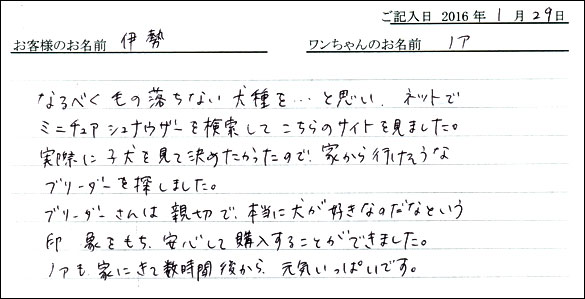 ご記入日 2016年 1月 29日
お客様のお名前 伊勢 ワンちゃんのお名前 ノア
なるべくもの落ちない犬種を…と思い、ネットで
ミニチュアシュナウザーを検索してこちらのサイトを見ました。
実際に子犬を見て決めたかったので、家から行けそうな
ブリーダーを探しました。
ブリーダーさんは親切で、本当に犬が好きなのだなという
印象をもち、安心して購入することができました。
ノアも家にきて数時間後から、元気いっぱいです。